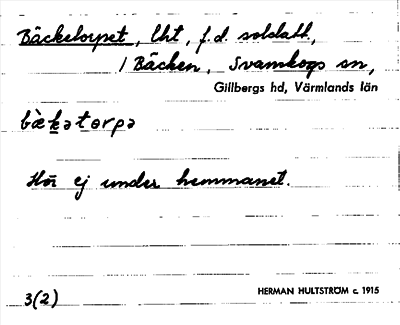 Bäcketorpet, lht, f.d. soldatt.,
/ Bäcken, Svanskogs sn,
Gillbergs hd, Värmlands län
bæ̀kətorpə
Hör ej under hemmanet.
3(2)
HERMAN HULTSTRÖM c. 1915